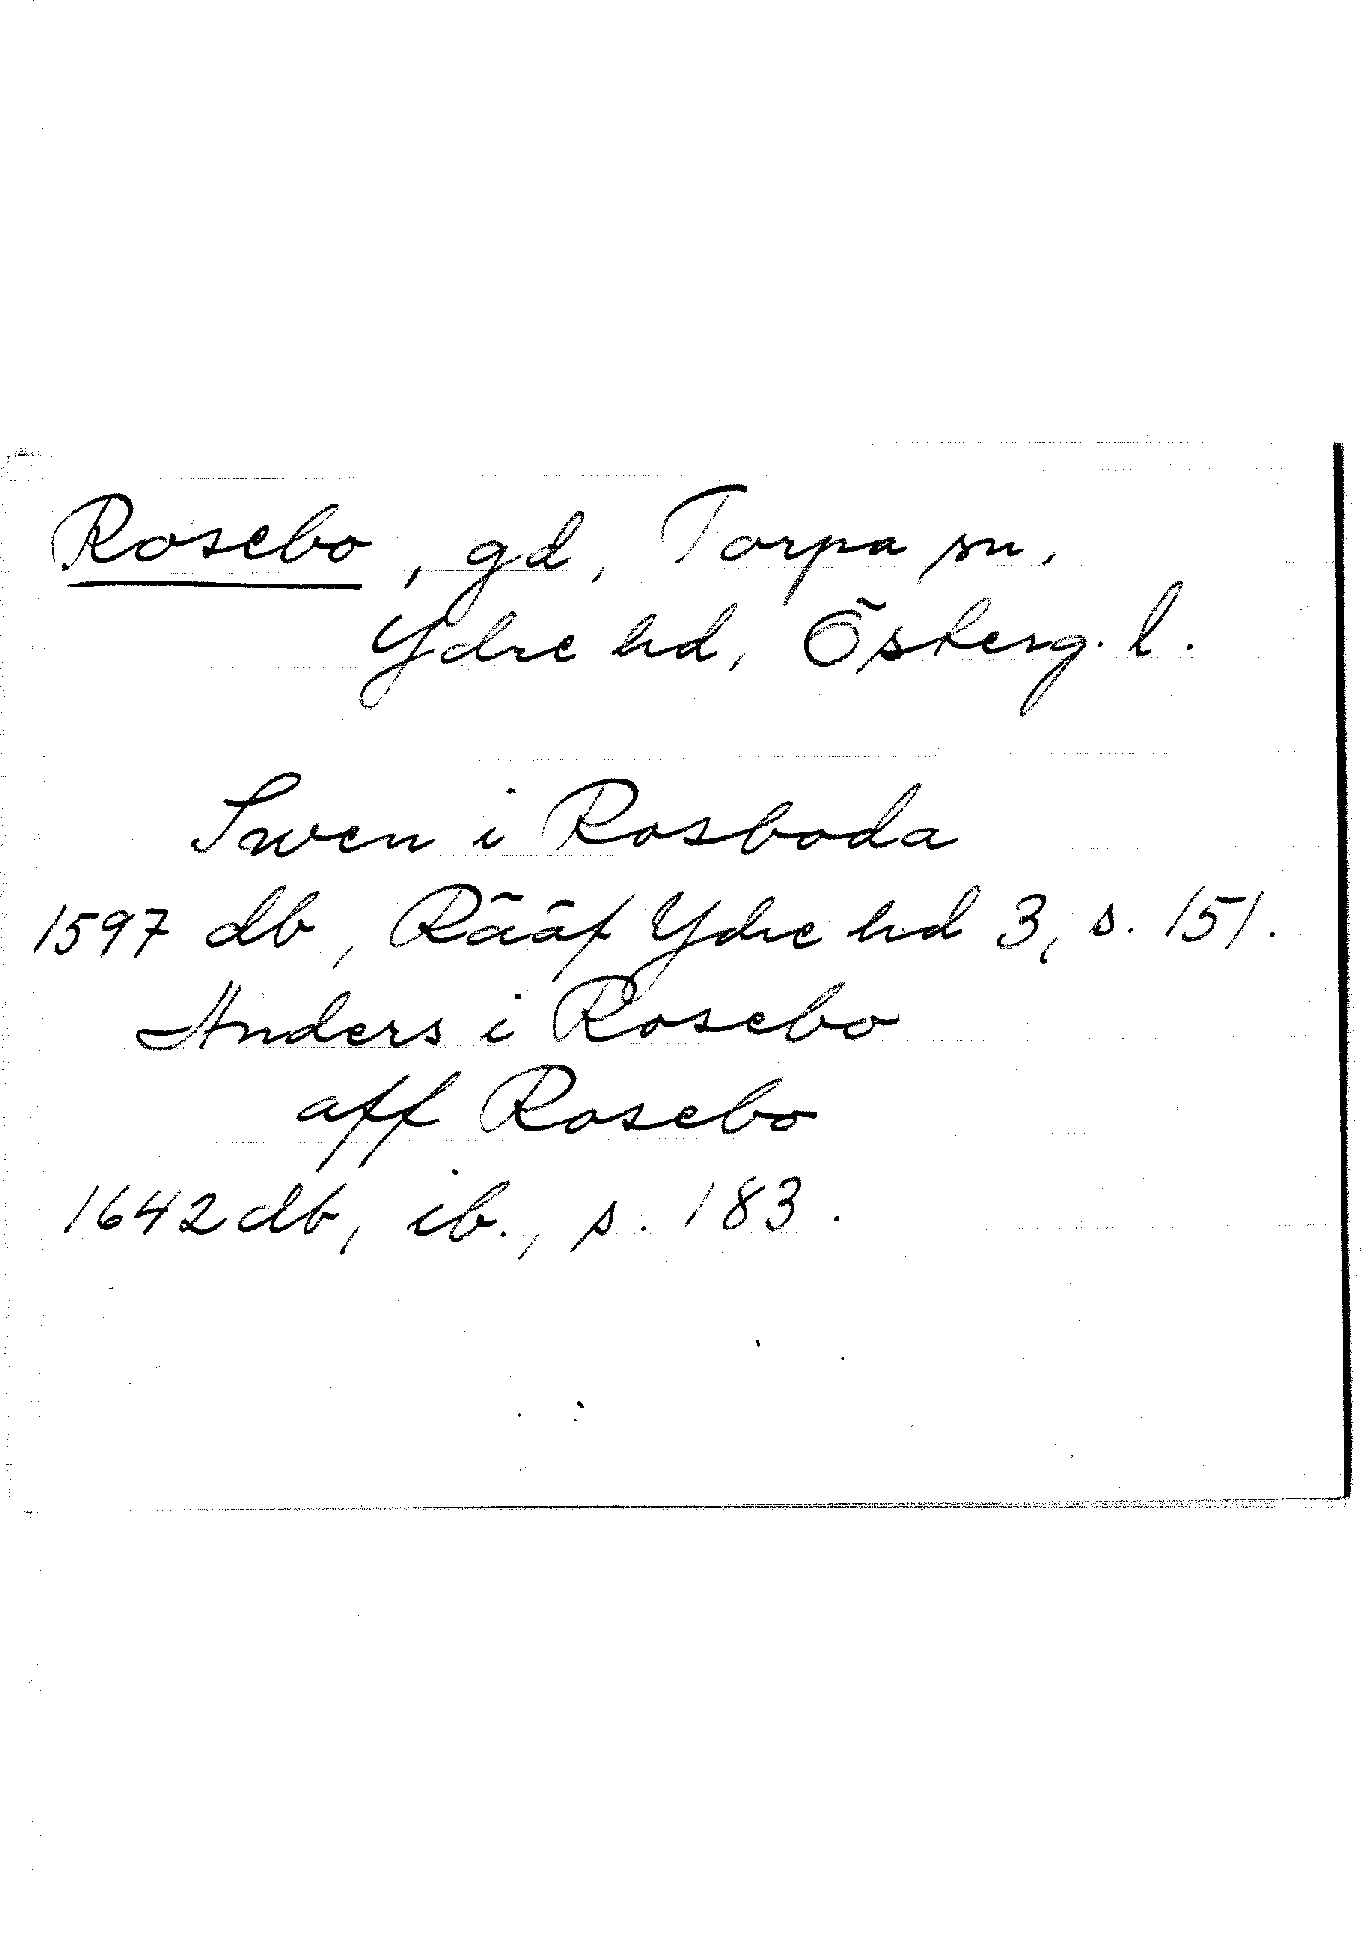 Rosebo, gd, Torpa sn,
Ydre hd, Österg. l.
Swen i Rosboda
1597 db, Rääf Ydre hd 3, s. 151.
Anders i Rosebo
aff Rosebo
1642 db, ib., s. 183.